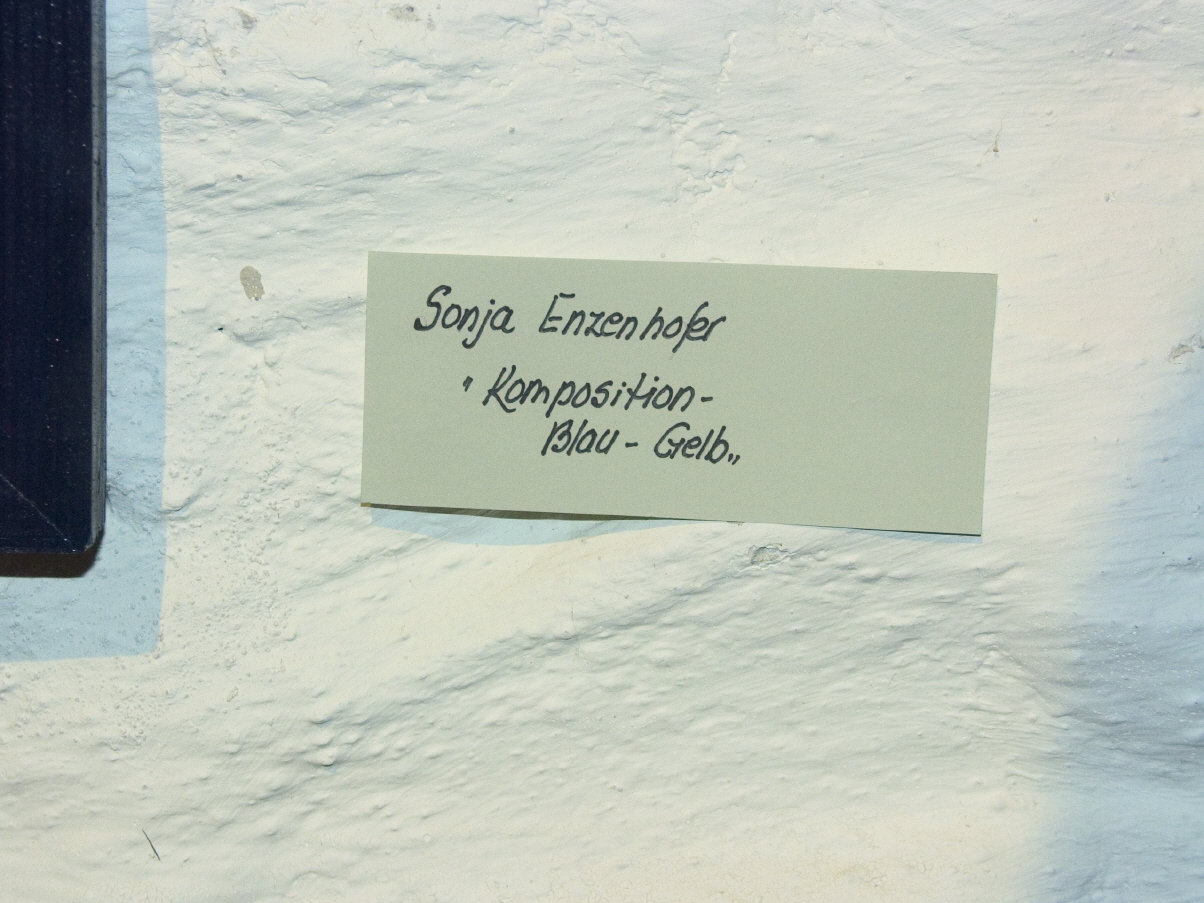 Sonja Enzenhofer
" Komposition-
Blau - Gelb„